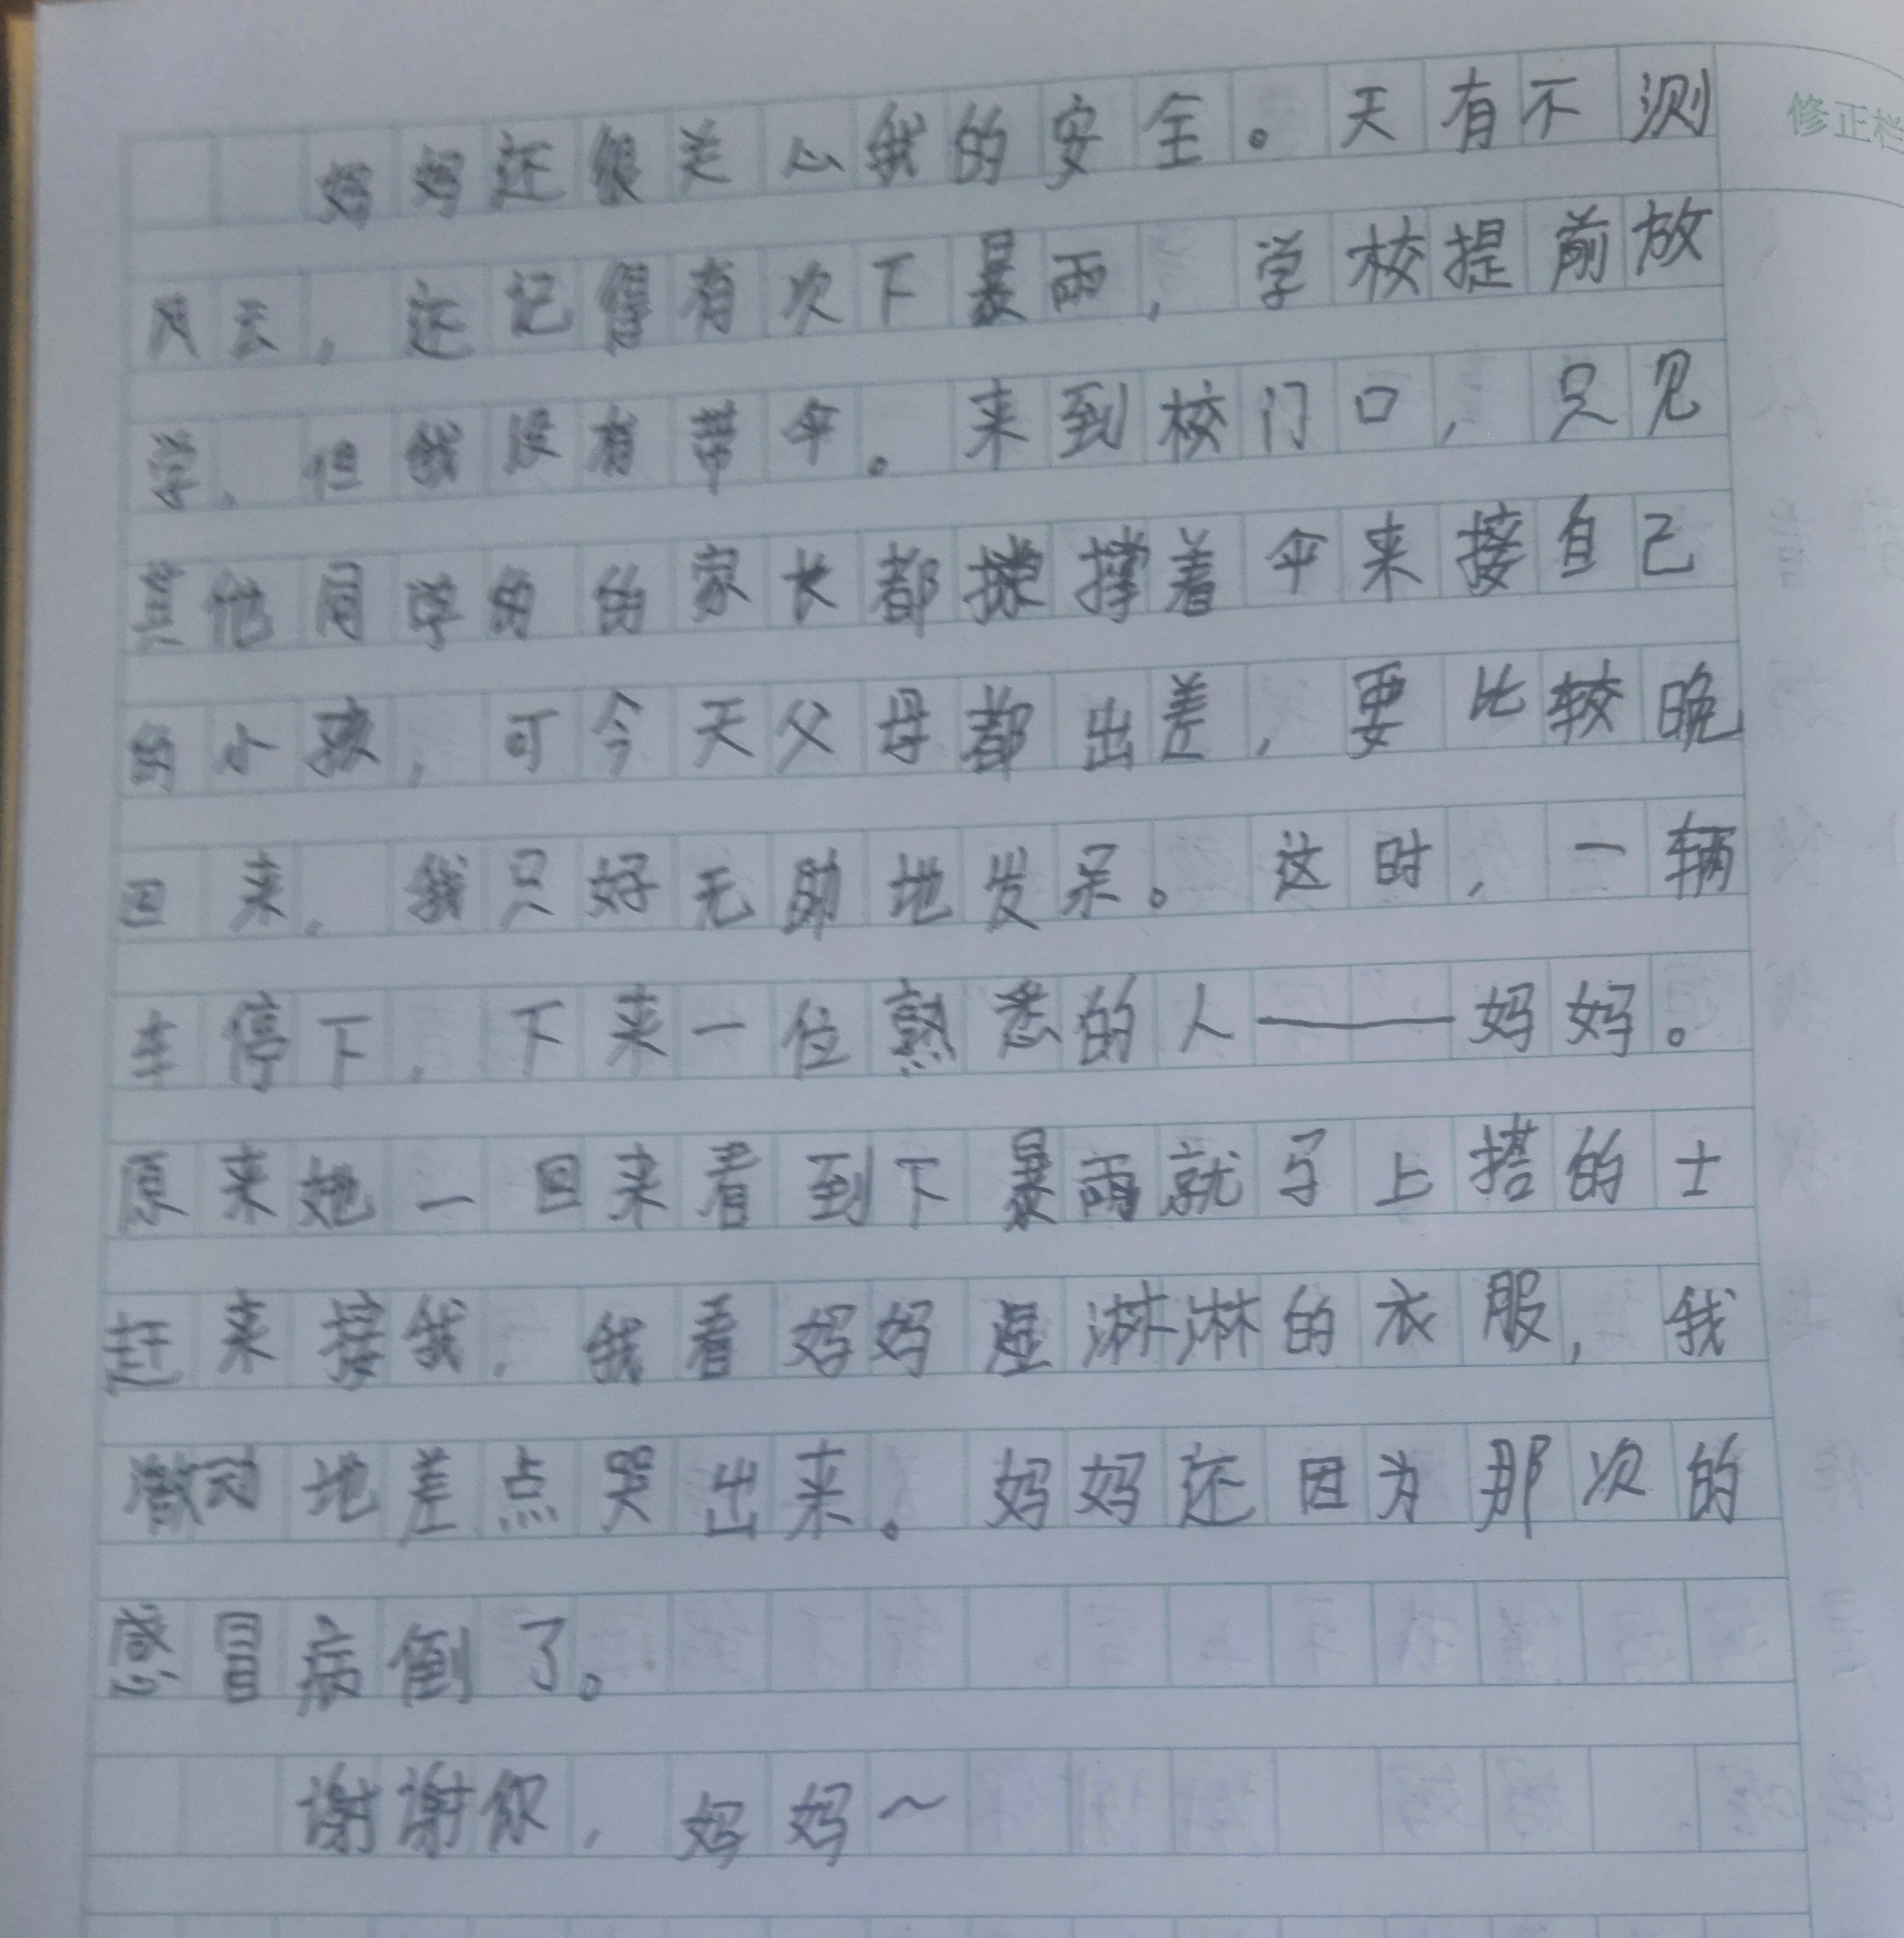 妈妈还很关心我的安全。天有不测
风云，还记得有次下暴雨，学校提前放
学，但我没有带伞。来到校门口，只见
其他同学的的家长都撑着伞来接自己
的小孩，可今天父母都出差，要比较晚
回来。我只好无助地发呆。这时，一辆
车停下，下来一位熟悉的人——妈妈。
原来她一回来看到下暴雨就马上搭的士
赶来接我，我看妈妈湿淋淋的衣服，我
激动地差点哭出来。妈妈还因为那次的
感冒病倒了。
谢谢你，妈妈～
修正栏